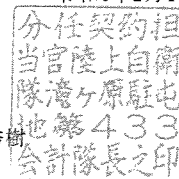 分任契約担
当官陸上自衛
隊滝ヶ原駐屯
地第４３３
会計隊長之印
樹